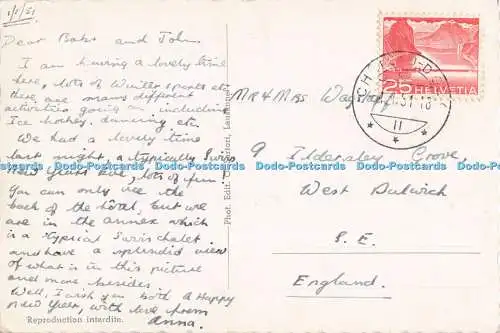 1/1/51
Dear Babs and John,
I am having a lovely time
here, lots of Winter sports etc
there are many different
activities going on including
Ice hockey, dancing etc.
We had a lovely time
last night, a typically Swiss
New Years Eve, lots of fun!
You can only see the
back of the hotel, but we
are in the annex which
is a typical Swiss chalet
and have a splendid view
of what is in this picture
and more besides
Well, I wish you both a Happy
New Year, with love from
Anna.
Reproduction interdite.
Phot. Edit. Lausanne
25 HELVETIA
51-18
II
Mr & Mrs Wagstaff
9 Ildersley Grove,
West Dulwich
S.E.
England.
Dasta-Postcards
www.dasta-postcards.com